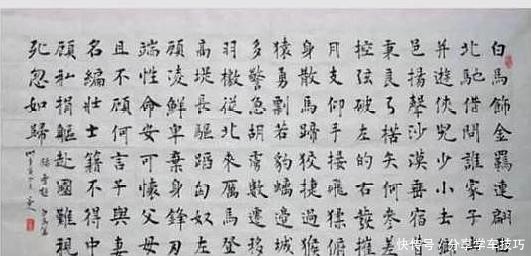 白馬飾金羈連翩
北馳借問誰家子
并遊俠兒少小去鄉
邑揚聲沙漠垂宿昔
秉良弓楛矢何參差
控弦破左的右發摧
月支仰手接飛猱俯
身散馬蹄狡捷過猴
猿勇剽若豹螭邊城
多警急胡虜數遷移
羽檄從北來厲馬登
高堤長驅蹈匈奴左
顧陵鮮卑棄身鋒刃
端性命安可懷父母
且不顧何言子與妻
名編壯士籍不得中
顧私捐軀赴國難視
死忽如歸
快传号/分享学车技巧